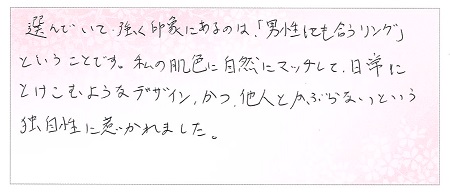 選んでいて強く印象にあるのは、「男性にも合うリング」
ということです。私の肌色に自然にマッチして、日常に
とけこむようなデザイン、かつ、他人とかぶらないという
独自性に惹かれました。